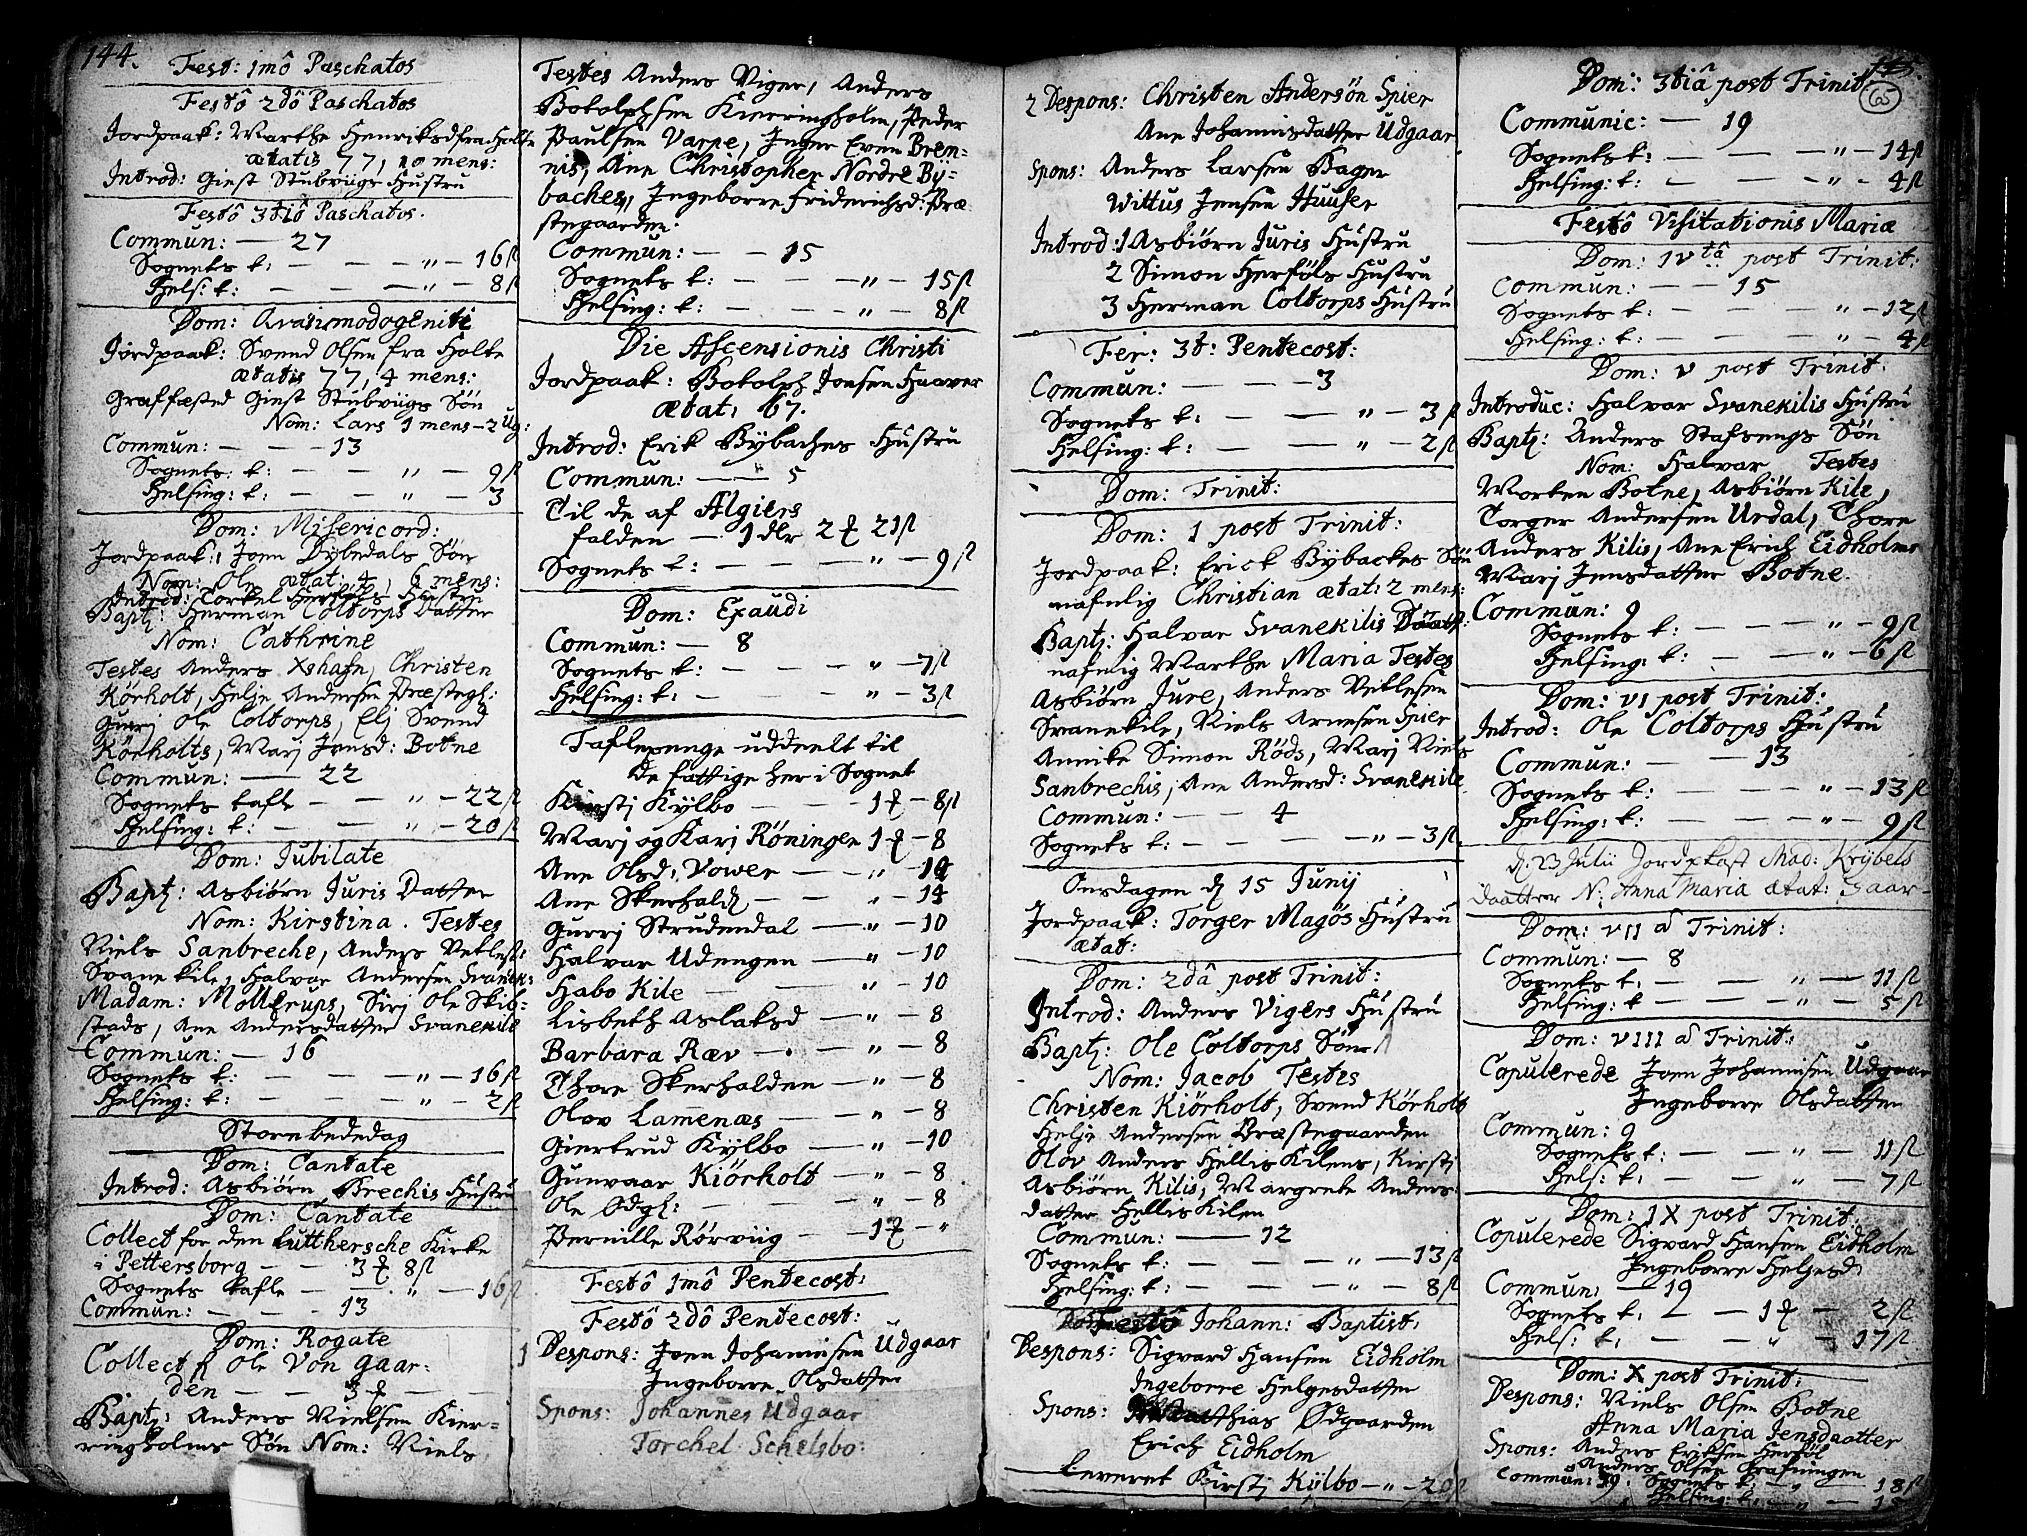 144.
Fest: 1mô Paschatos
Festô 2dô Paschatos
Jordpaak: Marthe Henriksd fra Holte
ætatis 77, 10 mens:
Introd: Giest Stubviigs Hustru
Festô 3tiô Paschatos.
Commun: — 27
Sognets t: — — — " — 16 ß
Helsi: t: — — — " — 8 ß
Dom: Qvasimodogeniti
Jordpaak: Svend Olsen fra Holte
ætatis 77, 4 mens:
Graffæsted Giest Stubviigs Søn
Nom: Lars 1 mens — 2 Ug:
Commun: — — 13
Sognets: t: — — " — 9 ß
Helsing: t: — — " — 3
Dom: Misericord:
Jordpaak: Joen Dybedals Søn
Nom: Ole ætat: 4, 6 mens:
Introd: Torkel Herføls Hustru
Bapt: Herman Coltorps Datter
Nom: Cathrine
Testes Anders Xshafn, Christen
Körholt, Helje Andersen Præstegh:
Gurrj Ole Coltorps, Elj Svend
Körholts, Marj Jensd: Botne
Commun: — 22
Sognets tafle — — " — 22 ß
Helsing: t: — — " — 20 ß
Dom: Jubilate
Bapt: Asbiørn Juris Datter
Nom: Kirstina. Testes
Niels Sanbreche, Anders Vetlest:
Svanekile, Halvor Andersen Svanek:
Madam: Mollerups, Sirj Ole Skib-
stads, Ane Andersdatter Svanekile
Commun: — 16
Sognets t: — — — " — 16 ß
Helsing: t: — — — " — 2 ß
Storebededag
Dom: Cantate
Introd: Asbiørn Brechis Hustru
Dom: Cantate
Collect for den Lutthersche Kirke
i Pettersborg — — 3 ₰ 8 ß
Sognets tafle — — " — 16 ß
Commun: — — — 13
Dom: Rogate
Collect f Ole Von gaar-
den — — 3 ₰ —
Bapt: Anders Nielsen Kier-
ringholms Søn Nom: Niels
Testes Anders Viger, Anders
Botolphsen Kierringholm, Peder
Paulsen Varpe, Inger Even Bren-
nis, Ane Christopher Nordre By-
baches, Ingeborre Friderichsd: Præ
stegaarden.
Commun: — — 15
Sognets t: — — — " — 15 ß
Helsing: t: — — — " — 8 ß
Die Ascensionis Christi
Jordpaak: Botolph Jonsen Haaver
ætat: 67.
Introd: Erik Bÿbaches Hustru
Commun: — — 5
Til de af Algiers
falden — 1 dlr 2 ₰ 21 ß
Sognets t: — — — " — 9 ß
Dom: Exaudi
Commun: — 8
Sognets t: — — — " — 7 ß
Helsing: t: — — — " — 3 ß
Taflepenge uddeelt til
de fattige her i Sognet
Kirstj Kÿlbo — — — 1 ₰ — 8 ß
Marj og Karj Röningen 1 ₰ — 8
Ane Olsd: Vower — — " — 14
Ane Skerhald — — " — 14
Gurrj Strudendal — " — 10
Halvar Udengen — " — 10
Habo Kile — — — " — 10
Lisbeth Aslaksd — " — 8
Barbara Ræv — — " — 8
Thore Skerhalden — " — 8
Olov Lamenæs — " — 8
Giertrud Kÿlbo — " — 10
Gunvaar Kiörholt — " — 8
Ole Ødgh: — — — " — 8
Pernille Rörviig — — 1 ₰ — "
Festô 1mô Pentecost:
Festô 2dô Pentecost:
1 Despons: Joen Johannisen Udgaar
Ingeborre Olsdatter
Spons: Johannes Udgaar
Torchel Schelsbo
2 Despons: Christen Andersøn Spier
Ane Johannisdatter Udgaar
Spons: Anders Larsen Bager
Wittus Jensen Huuser
Introd: 1 Asbiørn Juris Hustru
2 Simon Herføls Hustru
3 Herman Coltorps Hustru
Fer: 3t: Pentecost:
Commun: — — 3
Sognets t: — — " — 3 ß
Helsing: t: — — " — 2 ß
Dom: Trinit:
Dom: 1 post Trinit:
Jordpaak: Erick Bybackes Søn
nafnlig Christian ætat: 2 mens:
Bapt: Halvar Svanekilis Daat:
nafnlig Marthe Maria Testes
Asbiørn Jure, Anders Vetlesen
Svanekile, Niels Arnesen Spier
Annike Simon Röds, Marj Niels
Sanbrechis, Ane Andersd: Svanekile
Commun: — — 4
Sognets t: — — — " — 3 ß
Onsdagen d 15 Junij
Jordpaak: Torger Magös Hustru
ætat:
Dom: 2dâ post Trinit:
Introd: Anders Vigers Hustru
Bapt: Ole Coltorps Søn
Nom: Jacob Testes
Christen Kiörholt, Svend Körholt
Helje Andersen Præstegaarden
Olov Anders Hellis Kilens, Kirstj
Asbiørn Kilis, Margrete Anders
datter Hellis Kilen
Commun: — — 12
Sognets t: — — — " — 13 ß
Helsing: t: — — — " — 8 ß
Festô Johann: Baptist:
Despons: Sigvard Hansen Eidholm
Ingeborre Helgesdatter
Spons: Matthias Ødgaarden
Erich Eidholm
Leveret Kirstj Kÿlbo — " — 20 ß
145.
65
Dom: 3tiâ post Trinit
Communic: — 19
Sognets t: — — — " — 14 ß
Helsing: t: — — — " — 4 ß
Festô Visitationis Mariæ
Dom: 1vtâ post Trinit:
Commun: — — 15
Sognets t: — — — " — 12 ß
Helsing: t: — — — " — 4 ß
Dom: v post Trinit:
Introduc: Halvar Svanekilis Hustru
Bapt: Anders Stafsengs Søn
Nom: Halvar Testes
Morten Botne, Asbiørn Kile,
Torger Andersen Urdal, Thore
Anders Kilis, Ane Erich Eidholms
Marj Jensdatter Botne.
Commun: 9
Sognets t: — — — " — 9 ß
Helsing: t: — — — " — 6 ß
Dom: v1 post Trinit:
Introd: Ole Coltorps Hustru
Commun: — — 13
Sognets t: — — — " — 13 ß
Helsing: t: — — — " — 9 ß
d: 23 Julii Jordekast Mad: Krÿbels
Daatter N: Anna Maria ætat: 3 aar —
Dom: v11 â Trinit:
Commun: — 8
Sognets t: — — — " — 11 ß
Helsing: t — — — " — 5 ß
Dom: v111 â Trinit:
Copulerede Joen Johannisen Udgaar
Ingeborre Olsdatter
Commun: 9
Sognets t: — — " — 11 ß
Hels: t: — — " — 7 ß
Dom: 1X post Trinit
Copulerede Sigvard Hansen Eidholm
Ingeborre Heljesd:
Commun: — 19
Sognets t: — — 1 ₰ — 2 ß
Hels: t: — — " — 17 ß
Dom: X post Trinit:
Despons: Niels Olsen Botne
Anna Maria Jensdaatter
Spons: Anders Eriksen Herföl
Anders Olsen Grafningen
Commun: 19. Sognets t: — " — 18 ß
Helsing: t: — " — 15